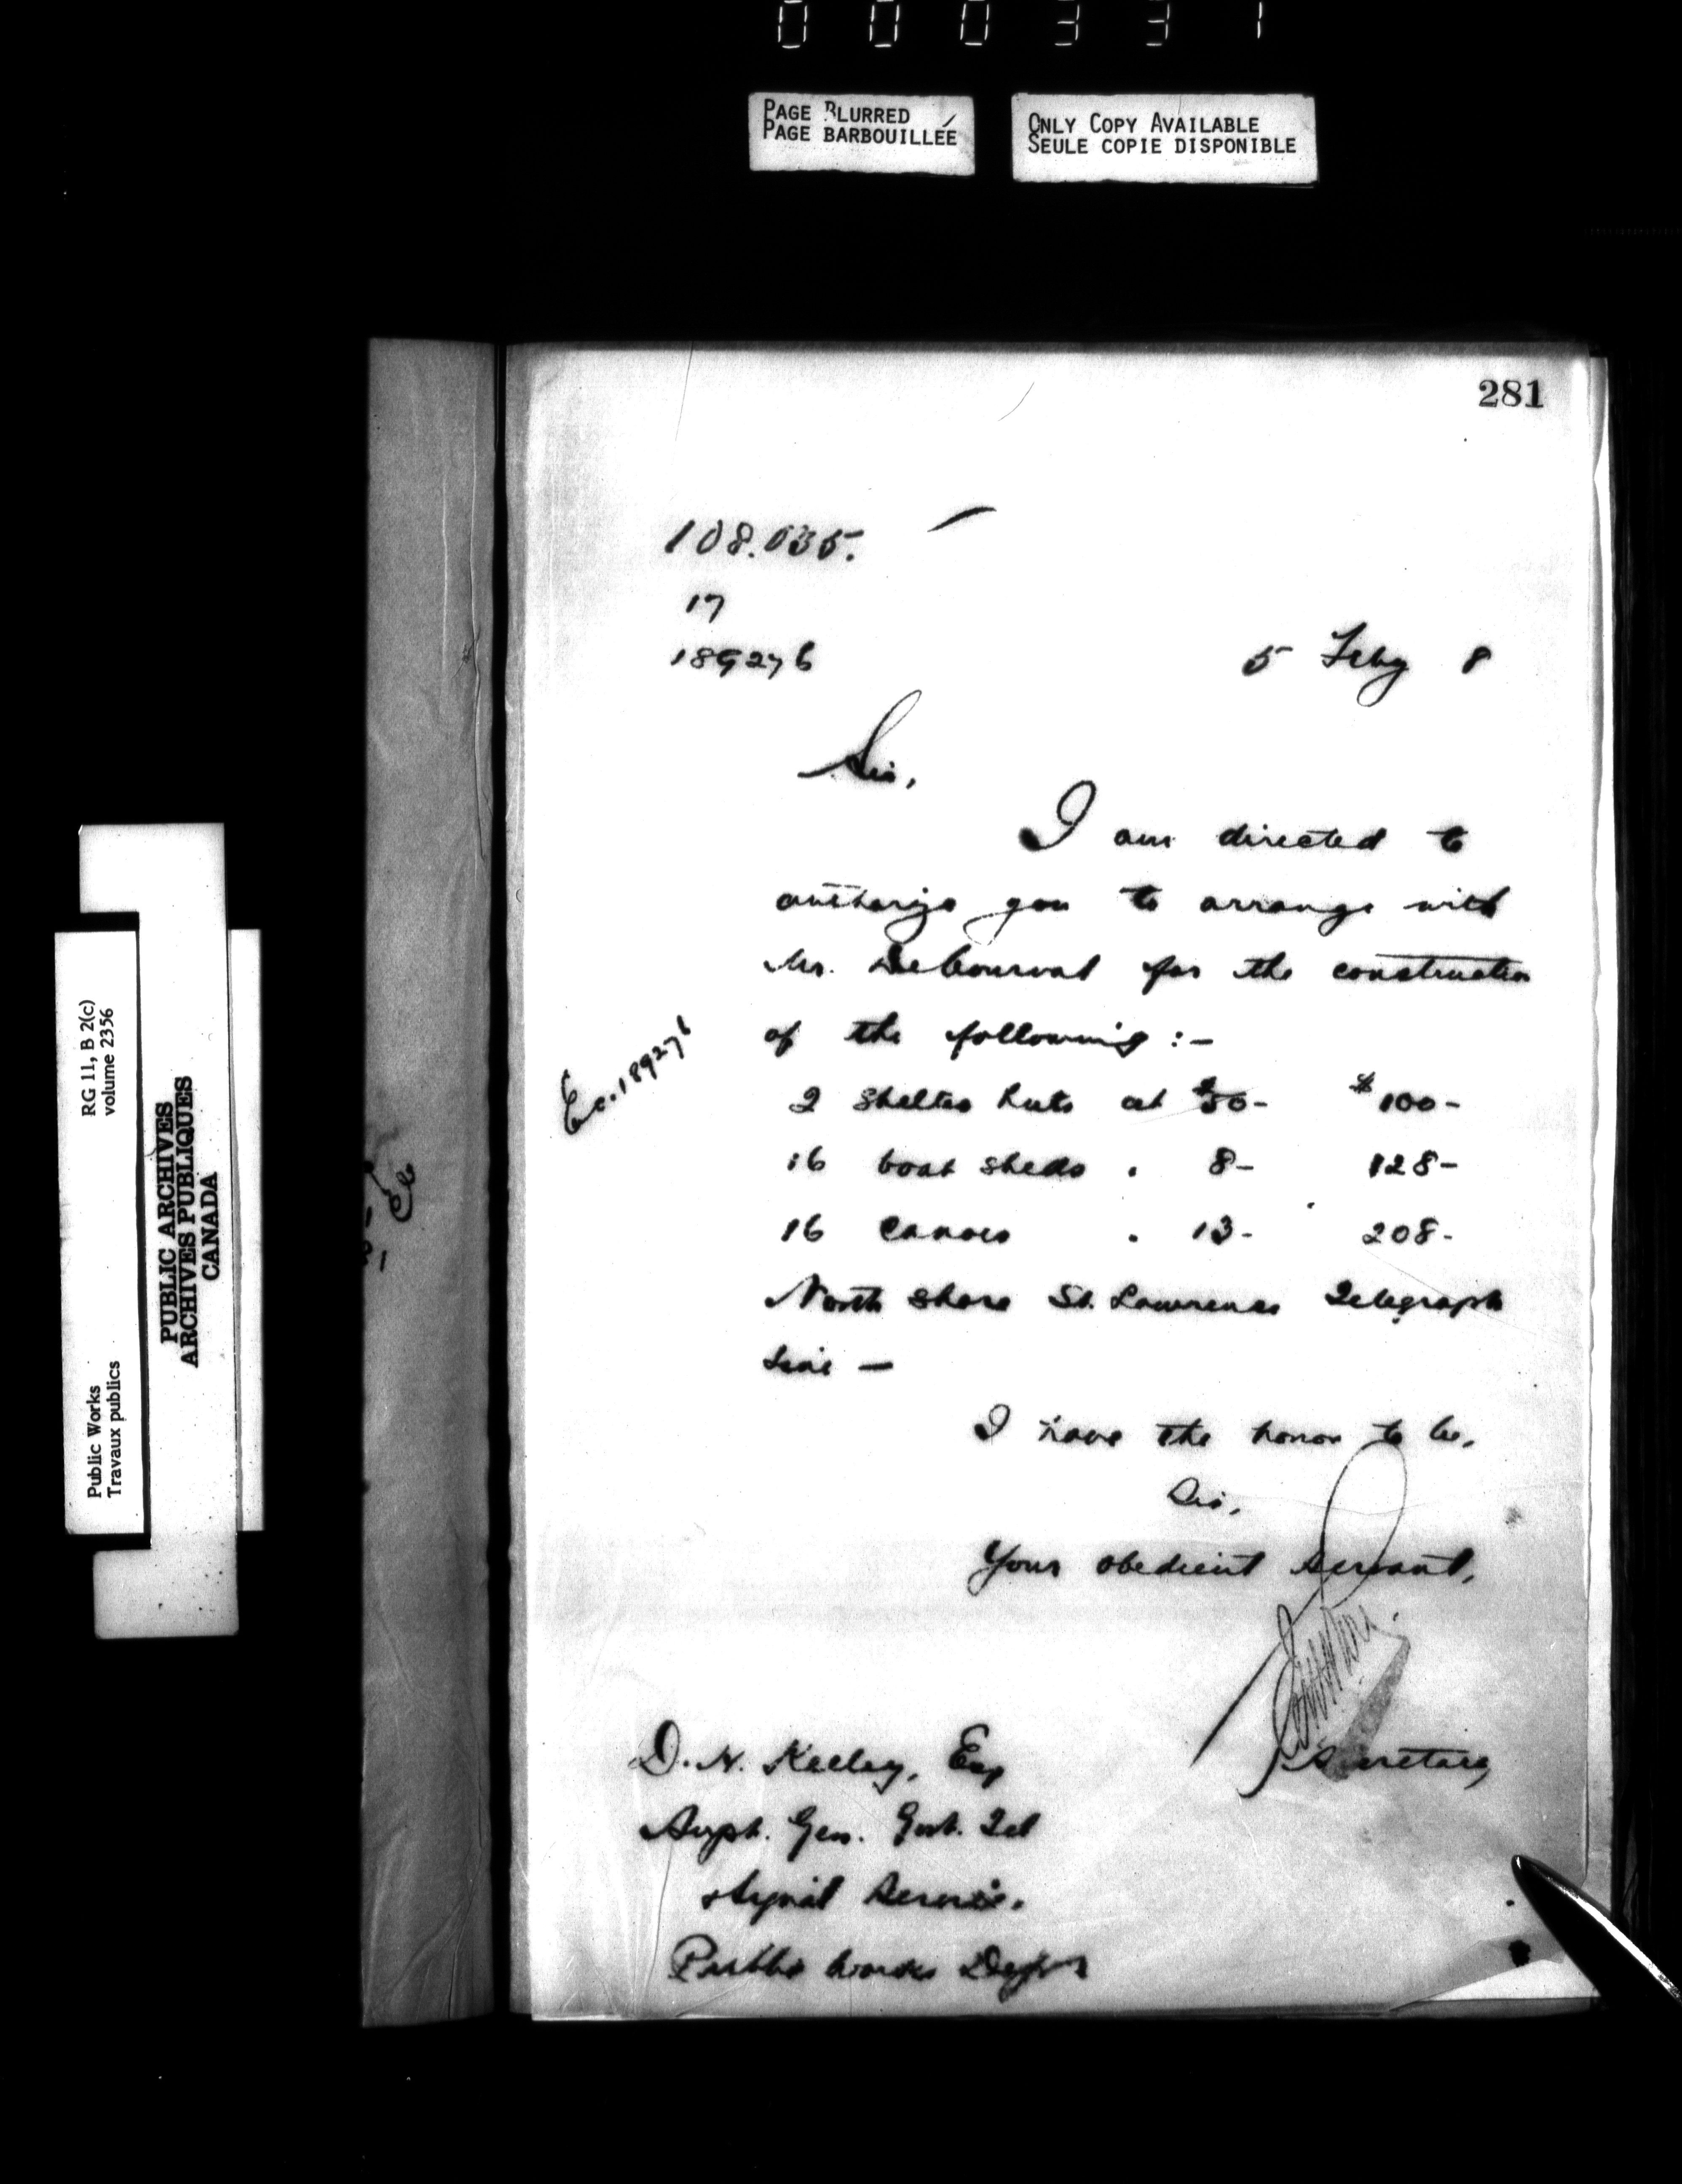 000331
PAGE BLURRED
PAGE BARBOUILLÉE
ONLY COPY AVAILABLE
SEULE COPIE DISPONIBLE
281
108.035.
17
189276
5 Feby 8
Sir,
I am directed to
authorize you to arrange with
Mr. for the construction
of the following :-
Ec. 189276
2 shelter huts at $50- $100-
16 boat sheds . 8- 128-
16 canoes . 13- 208-
North shore St. Lawrence Telegraph
Line —
I have the honor to be,
Sir,
Your obedient servant,
Secretary
D. N. Keeley, Esq
Supt. Gen. Govt. Tel
& Signal Service.
Public Works Dept
RG 11, B 2(c)
volume 2356
PUBLIC ARCHIVES
ARCHIVES PUBLIQUES
CANADA
Public Works
Travaux publics